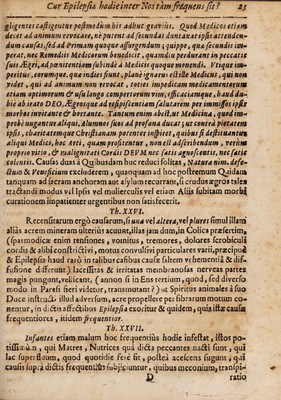 Cur Epilepsia hodie inter Nos tam frequens sit? 25
gligentes castigentur pessimotum hic adhuc graviùs. Quod Medicos etiam
decet ad animum revocare, nè putent ad secundas duntaxat ipsis attenden-
dum causas, sed ad Primam quoque assurgendum; quippe, qua secundis im-
perat, nec Remediis Medicorum benedicit, quandiu perdurant in peccatis
suis Ægri, ad pœnitentiam subinde à Medicis quoque monendi. Utique im-
peritus, eorumque, quæ indies fiunt, planè ignarus est ille Medicus, qui non
videt, qui ad animum non revocat, toties impeditam medicamentorum
etiam optimorum & usu longo compertorum vim, efficaciamque, haud du-
biè ab irato DEO, Ægrosque ad resipiscentiam salutarem per immissos ipsis
morbos invitante & hortante. Tantum enim abest, ut Medicina, quod im-
probè nugantur aliqui, Alumnos suos ad profana ducat; ut contrà pietatem
ipsis, charitatemque Christianam potenter inspiret, quibus si destituuntur
aliqui Medici, hoc ceti, quam profitentur, non est adscribendum, verùm
proprio vitio, & malignitati Cordis DEUM nec satis agnoscentis, nec satis
colentis. Causas duas à Quibusdam huc reduci solitas, Natura nim. defe-
ctum & Veneficium excluderem, quanquam ad hoc postremum Quidam
tanquam ad sacram anchoram aut asylum recurrant, si crudus ægros tales
tractandi modus vel ipsis vel mulierculis vel etiam Aliis subitam morbi
curationem impatienter urgentibus non satisfecerit.
Th. XXVI.
Recensitarum ergò causarum, si una vel altera, vel plures simul illam
aliàs acrem mineram ulteriùs acuunt, illas jam dum, in Colica præsertim,
(spasmodicæ enim tensiones, vomitus, tremores, dolores scrobiculi
cordis & alibi constrictivi, motus convulsivi particulares varii, præcipuè
& Epilepsia haud rarò in talibus casibus causæ saltem vehementiâ & dif-
fusione differunt) lacessitas & irritatas membranosas nerveas partes
magis pungunt, vellicant, (annon si in Ens tertium, quod, sed diverso
modo in Paresi fieri videtur, transmutante?) ut Spiritus animales à suo
Duce instructi illud adversum, acre propellere per fibrarum motum co-
nentur, in dictis affectibus Epilepsia exoritur & quidem, quia istæ causæ
frequentiores, itidem frequentior.
Th. XXVII.
Infantes etiam malum hoc frequentiùs hodie infestat, istos po-
tissimùm, qui Matres, Nutrices quâ dicta peccantes nacti sunt, qui
lac superfluum, quod quotidie ferè fit, posteà acescens sugunt, qui
causis suprà dictis frequentiùs subjiciuntur, quibus meconium, transpi-
D ratio